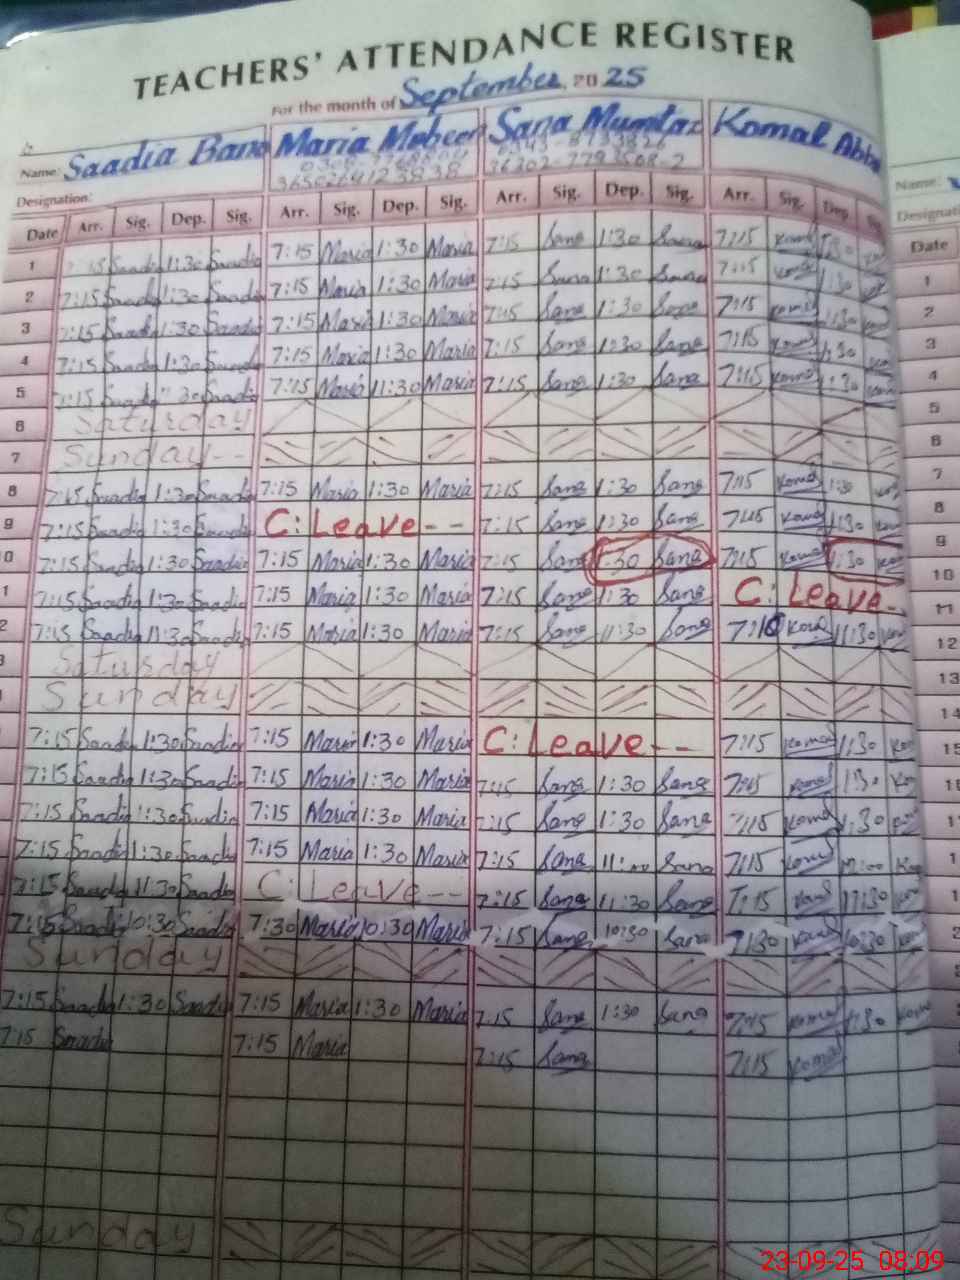 TEACHERS' ATTENDANCE REGISTER
For the month of September, 2025
Name: Saadia Bano Maria Mobeen Sana Mumtaz Komal Abba
Name:
Designation:
Designati
Date Arr. Sig. Dep. Sig. Arr. Sig. Dep. Sig. Arr. Sig. Dep. Sig. Arr. Sig. Dep. Date
1 7:15 Saadia 1:30 Saadia 7:15 Maria 1:30 Maria 7:15 Sana 1:30 Sana 7:15 Komal 1:30 1
2 7:15 Saadia 1:30 Saadia 7:15 Maria 1:30 Maria 7:15 Sana 1:30 Sana 7:15 Komal 1:30 2
3 7:15 Saadia 1:30 Saadia 7:15 Maria 1:30 Maria 7:15 Sana 1:30 Sana 7:15 Komal 1:30 3
4 7:15 Saadia 1:30 Saadia 7:15 Maria 1:30 Maria 7:15 Sana 1:30 Sana 7:15 Komal 1:30 4
5 7:15 Saadia 1:30 Saadia 7:15 Maria 11:30 Maria 7:15 Sana 1:30 Sana 7:15 Komal 1:30 5
6 Saturday 6
7 Sunday-- 7
8 7:15 Saadia 1:30 Saadia 7:15 Maria 1:30 Maria 7:15 Sana 1:30 Sana 7:15 Komal 1:30 8
9 7:15 Saadia 1:30 Saadia C: Leave-- 7:15 Sana 1:30 Sana 7:15 Komal 1:30 9
0 7:15 Saadia 1:30 Saadia 7:15 Maria 1:30 Maria 7:15 Sana 1:30 Sana 7:15 Komal 1:30 10
1 7:15 Saadia 1:30 Saadia 7:15 Maria 1:30 Maria 7:15 Sana 1:30 Sana C: Leave-- 11
2 7:15 Saadia 11:30 Saadia 7:15 Maria 1:30 Maria 7:15 Sana 11:30 Sana 7:10 Komal 11:30 12
Saturday 13
Sunday 14
7:15 Saadia 1:30 Saadia 7:15 Maria 1:30 Maria C: Leave-- 7:15 Komal 1:30 15
7:15 Saadia 1:30 Saadia 7:15 Maria 1:30 Maria 7:15 Sana 1:30 Sana 7:15 Komal 1:30
7:15 Saadia 1:30 Saadia 7:15 Maria 1:30 Maria 7:15 Sana 1:30 Sana 7:15 Komal 1:30
7:15 Saadia 1:30 Saadia 7:15 Maria 1:30 Maria 7:15 Sana Sana 7:15 Komal
7:15 Saadia 11:30 Saadia C: Leave-- 7:15 Sana 11:30 Sana 7:15 Komal 11:30
7:15 Saadia 10:30 Saadia 7:30 Maria 10:30 Maria 7:15 Sana 10:30 Sana 7:30 Komal 10:30
Sunday
7:15 Saadia 1:30 Saadia 7:15 Maria 1:30 Maria 7:15 Sana 1:30 Sana 7:15 Komal 1:30 Komal
7:15 Saadia 7:15 Maria 7:15 Sana 7:15 Komal
Sunday
23-09-25 08:09